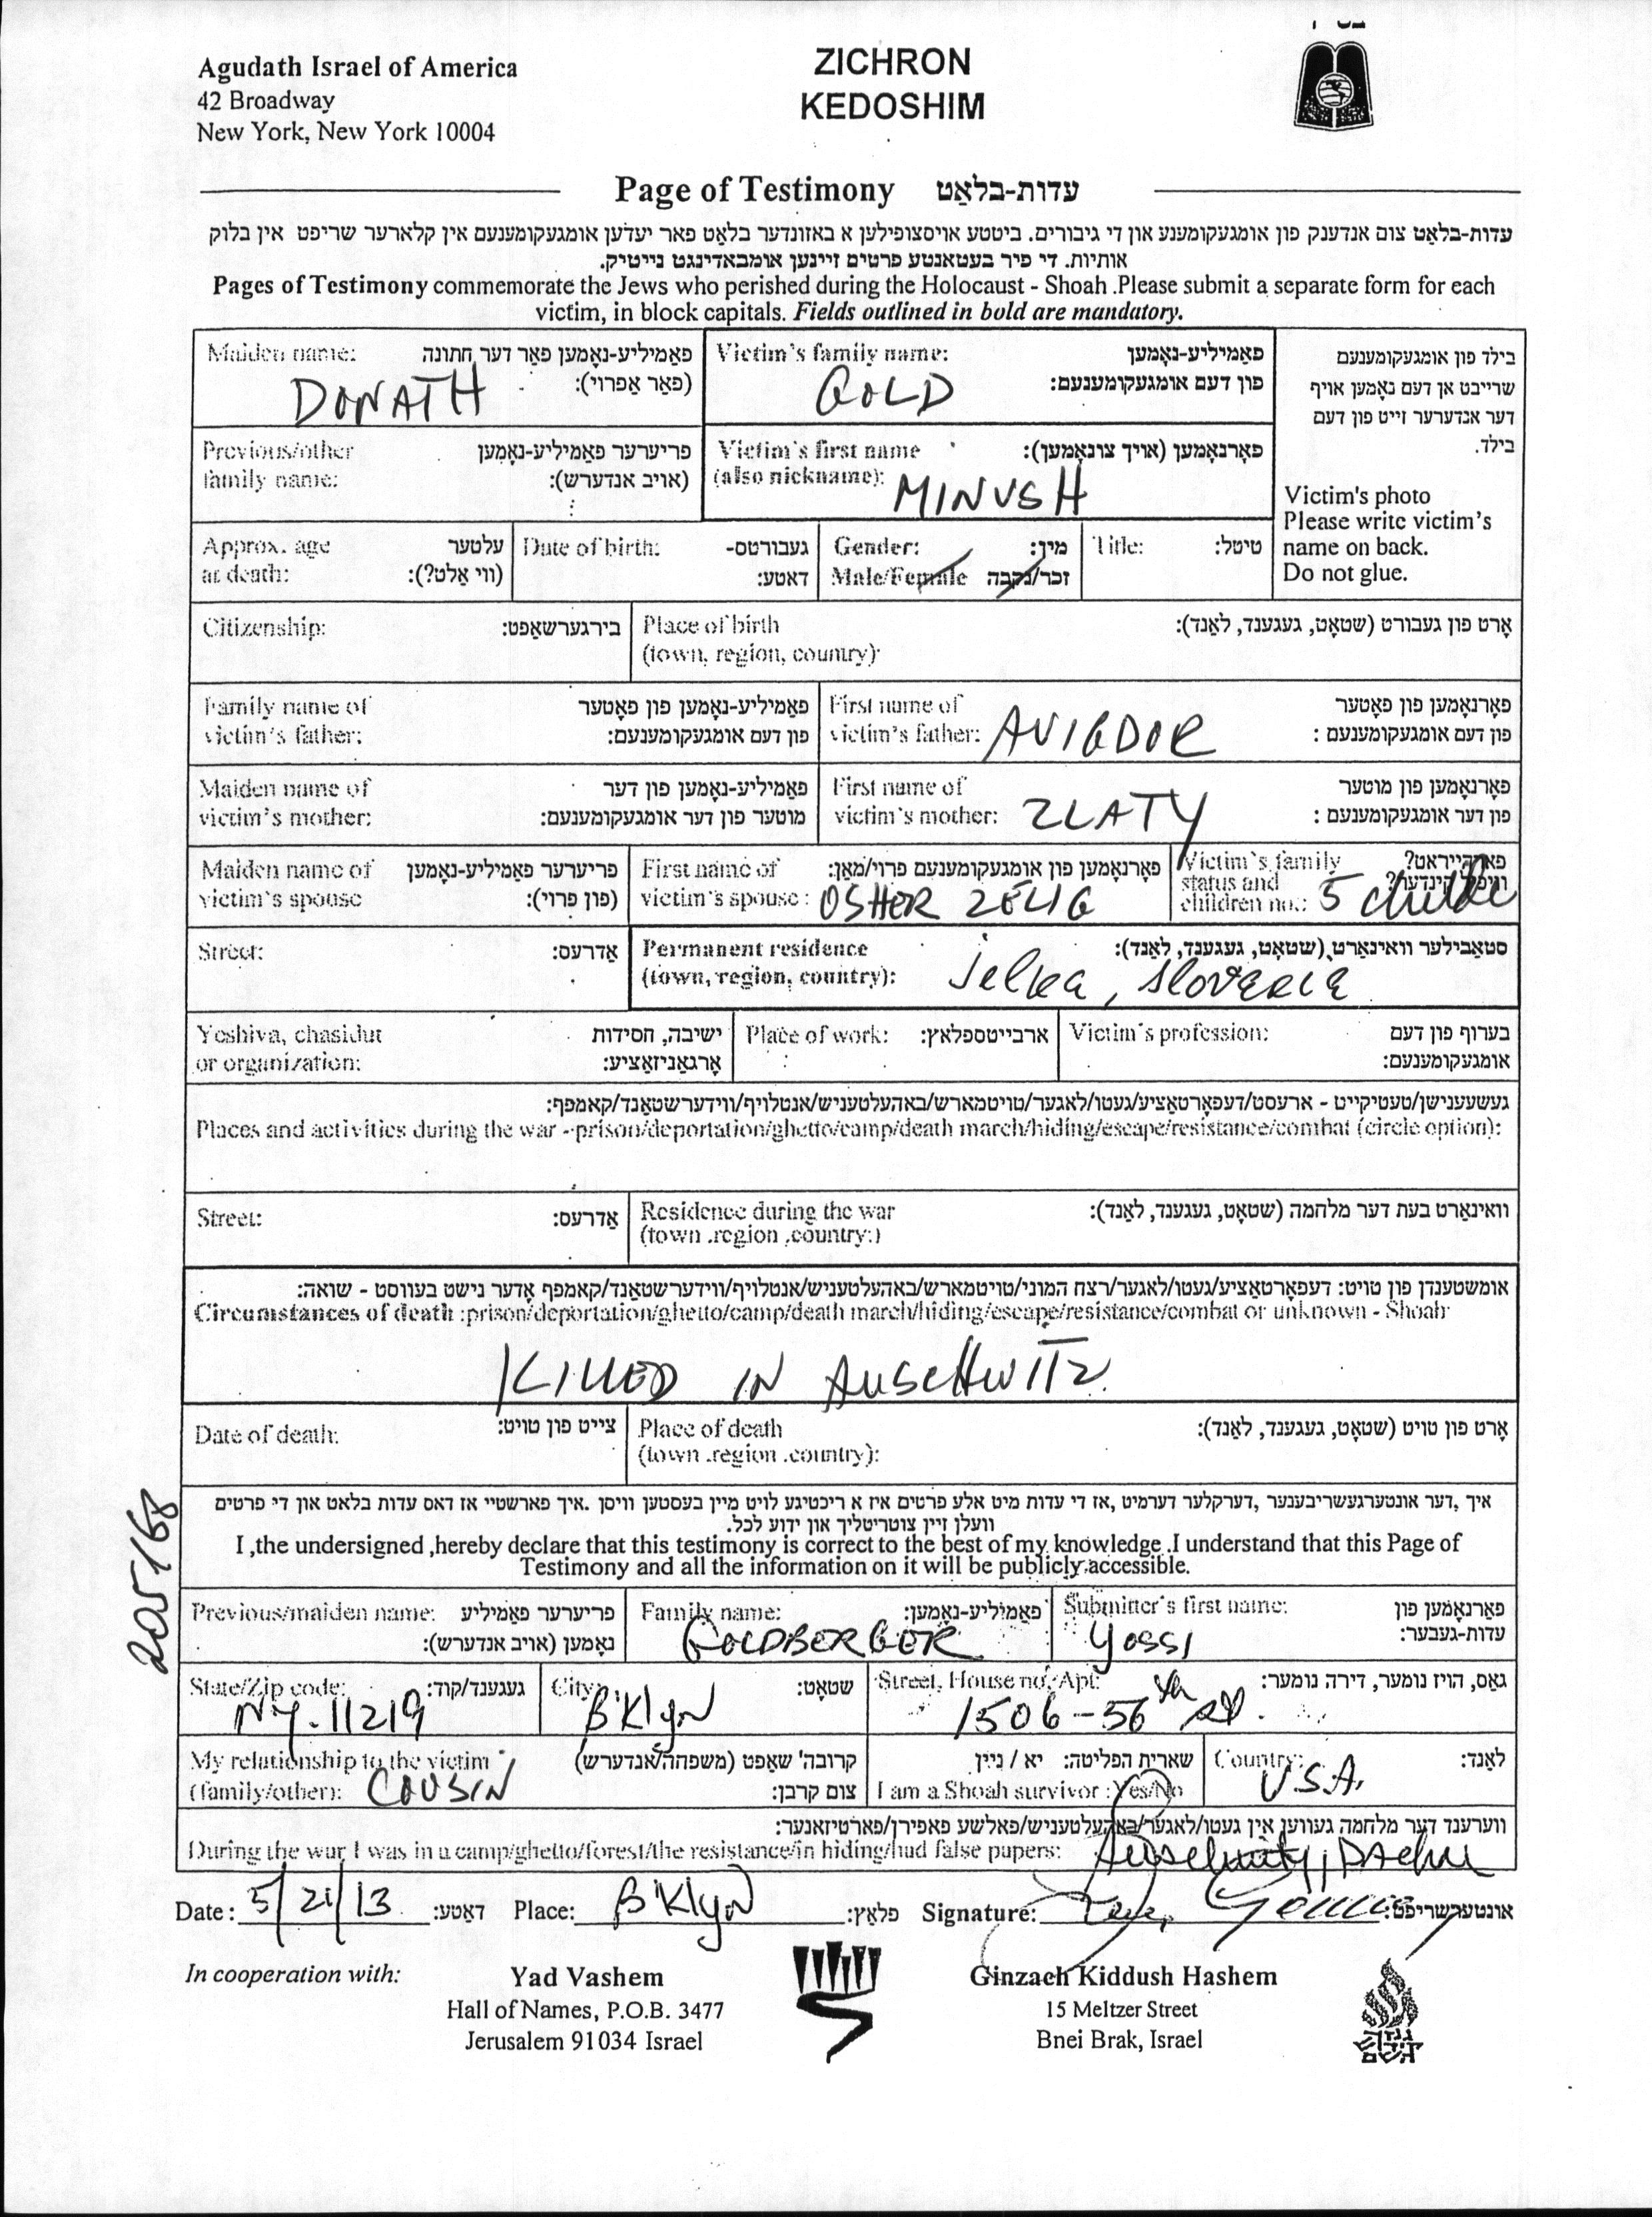 Agudath Israel of America
42 Broadway
New York, New York 10004
ZICHRON
KEDOSHIM
Page of Testimony עדות-בלאַט
עדות-בלאַט צום אנדענק פון אומגעקומענע און די גיבורים. ביטטע אויסצופילען א באזונדער בלאַט פאר יעדען אומגעקומענעם אין קלארער שריפט אין בלוק
אותיות. די פיר בעטאנטע פרטים זיינען אומבאדינגט נייטיק.
Pages of Testimony commemorate the Jews who perished during the Holocaust - Shoah .Please submit a separate form for each
victim, in block capitals. Fields outlined in bold are mandatory.
Maiden name: פאַמיליע-נאָמען פאַר דער חתונה
(פאַר אַפרוי):
DONATH
Victim's family name: פאַמיליע-נאָמען
פון דעם אומגעקומענעם:
GOLD
בילד פון אומגעקומענעם
שרייבט אן דעם נאָמען אויף
דער אנדערער זייט פון דעם
בילד.
Victim's photo
Please write victim's
name on back.
Do not glue.
Previous/other פריערער פאַמיליע-נאָמען
family name: (אויב אנדערש):
Victim's first name פאָרנאָמען (אויך צונאָמען):
(also nickname): MINUSH
Approx. age עלטער
at death: (ווי אַלט?):
Date of birth: געבורטס-
דאטע:
Gender: מין:
Male/Female זכר/נקבה
Title: טיטל:
Citizenship: בירגערשאַפט:
Place of birth אָרט פון געבורט (שטאָט, געגענד, לאַנד):
(town, region, country):
Family name of פאַמיליע-נאָמען פון פאָטער
victim's father: פון דעם אומגעקומענעם:
First name of פאָרנאָמען פון פאָטער
victim's father: AVIGDOR פון דעם אומגעקומענעם :
Maiden name of פאַמיליע-נאָמען פון דער
victim's mother: מוטער פון דער אומגעקומענעם:
First name of פאָרנאָמען פון מוטער
victim's mother: ZLATY פון דער אומגעקומענעם :
Maiden name of פריערער פאַמיליע-נאָמען
victim's spouse (פון פרוי):
First name of פאָרנאָמען פון אומגעקומענעם פרוי/מאַן:
victim's spouse : OSHER ZELIG
Victim's family פאַרהייראט?
status and וויפל קינדער?
children no.: 5
Street: אַדרעס:
Permanent residence סטאַבילער וואוינאָרט (שטאָט, געגענד, לאַנד):
(town, region, country): Jelka, Slovakia
Yeshiva, chasidut ישיבה, חסידות
or organization: אָרגאַניזאַציע:
Place of work: ארבייטספלאַץ:
Victim's profession: בערוף פון דעם
אומגעקומענעם:
געשעענישן/טעטיקייט - ארעסט/דעפאָרטאַציע/געטו/לאַגער/טויטמארש/באַהעלטעניש/אנטלויף/ווידערשטאַנד/קאמפף:
Places and activities during the war -prison/deportation/ghetto/camp/death march/hiding/escape/resistance/combat (circle option):
Street: אַדרעס:
Residence during the war וואוינארט בעת דער מלחמה (שטאָט, געגענד, לאַנד):
(town .region ,country:)
אומשטענדן פון טויט: דעפאָרטאַציע/געטו/לאגער/רצח המוני/טויטמארש/באַהעלטעניש/אנטלויף/ווידערשטאַנד/קאמפף אָדער נישט בעוווסט - שואה:
Circumstances of death :prison/deportation/ghetto/camp/death march/hiding/escape/resistance/combat or unknown - Shoah:
KILLED IN AUSCHWITZ
Date of death: צייט פון טויט:
Place of death אָרט פון טויט (שטאָט, געגענד, לאַנד):
(town .region .country):
איך ,דער אונטערגעשריבענער ,דערקלער דערמיט ,אז די עדות מיט אלע פרטים איז א ריכטיגע לויט מיין בעסטען וויסן .איך פארשטיי אז דאס עדות בלאט און די פרטים
וועלן זיין צוטריטליך און ידוע לכל.
I ,the undersigned ,hereby declare that this testimony is correct to the best of my knowledge .I understand that this Page of
Testimony and all the information on it will be publicly accessible.
205168
Previous/maiden name: פריערער פאַמיליע
נאָמען (אויב אנדערש):
Family name: פאַמיליע-נאָמען:
GOLDBERGER
Submitter's first name: פארנאָמען פון
עדות-געבער:
YOSSI
State/Zip code: געגענד/קוד:
NY. 11219
City: שטאָט:
B'Klyn
Street, House no, Apt: גאַס, הויז נומער, דירה נומער:
1506 - 56th St.
My relationship to the victim קרובה'שאַפט (משפחה/אנדערש)
(family/other): COUSIN צום קרבן:
שארית הפליטה: יא / ניין
I am a Shoah survivor :Yes/No
Country: לאַנד:
U.S.A.
ווערענד דער מלחמה געווען אין געטו/לאגער/באַהעלטעניש/פאלשע פאפירן/פארטיזאנער:
During the war I was in a camp/ghetto/forest/the resistance/in hiding/had false papers:
Date: 5/21/13 דאַטע: Place: B'Klyn פלאַץ: Signature: אונטערשריפט:
In cooperation with:
Yad Vashem
Hall of Names, P.O.B. 3477
Jerusalem 91034 Israel
Ginzach Kiddush Hashem
15 Meltzer Street
Bnei Brak, Israel